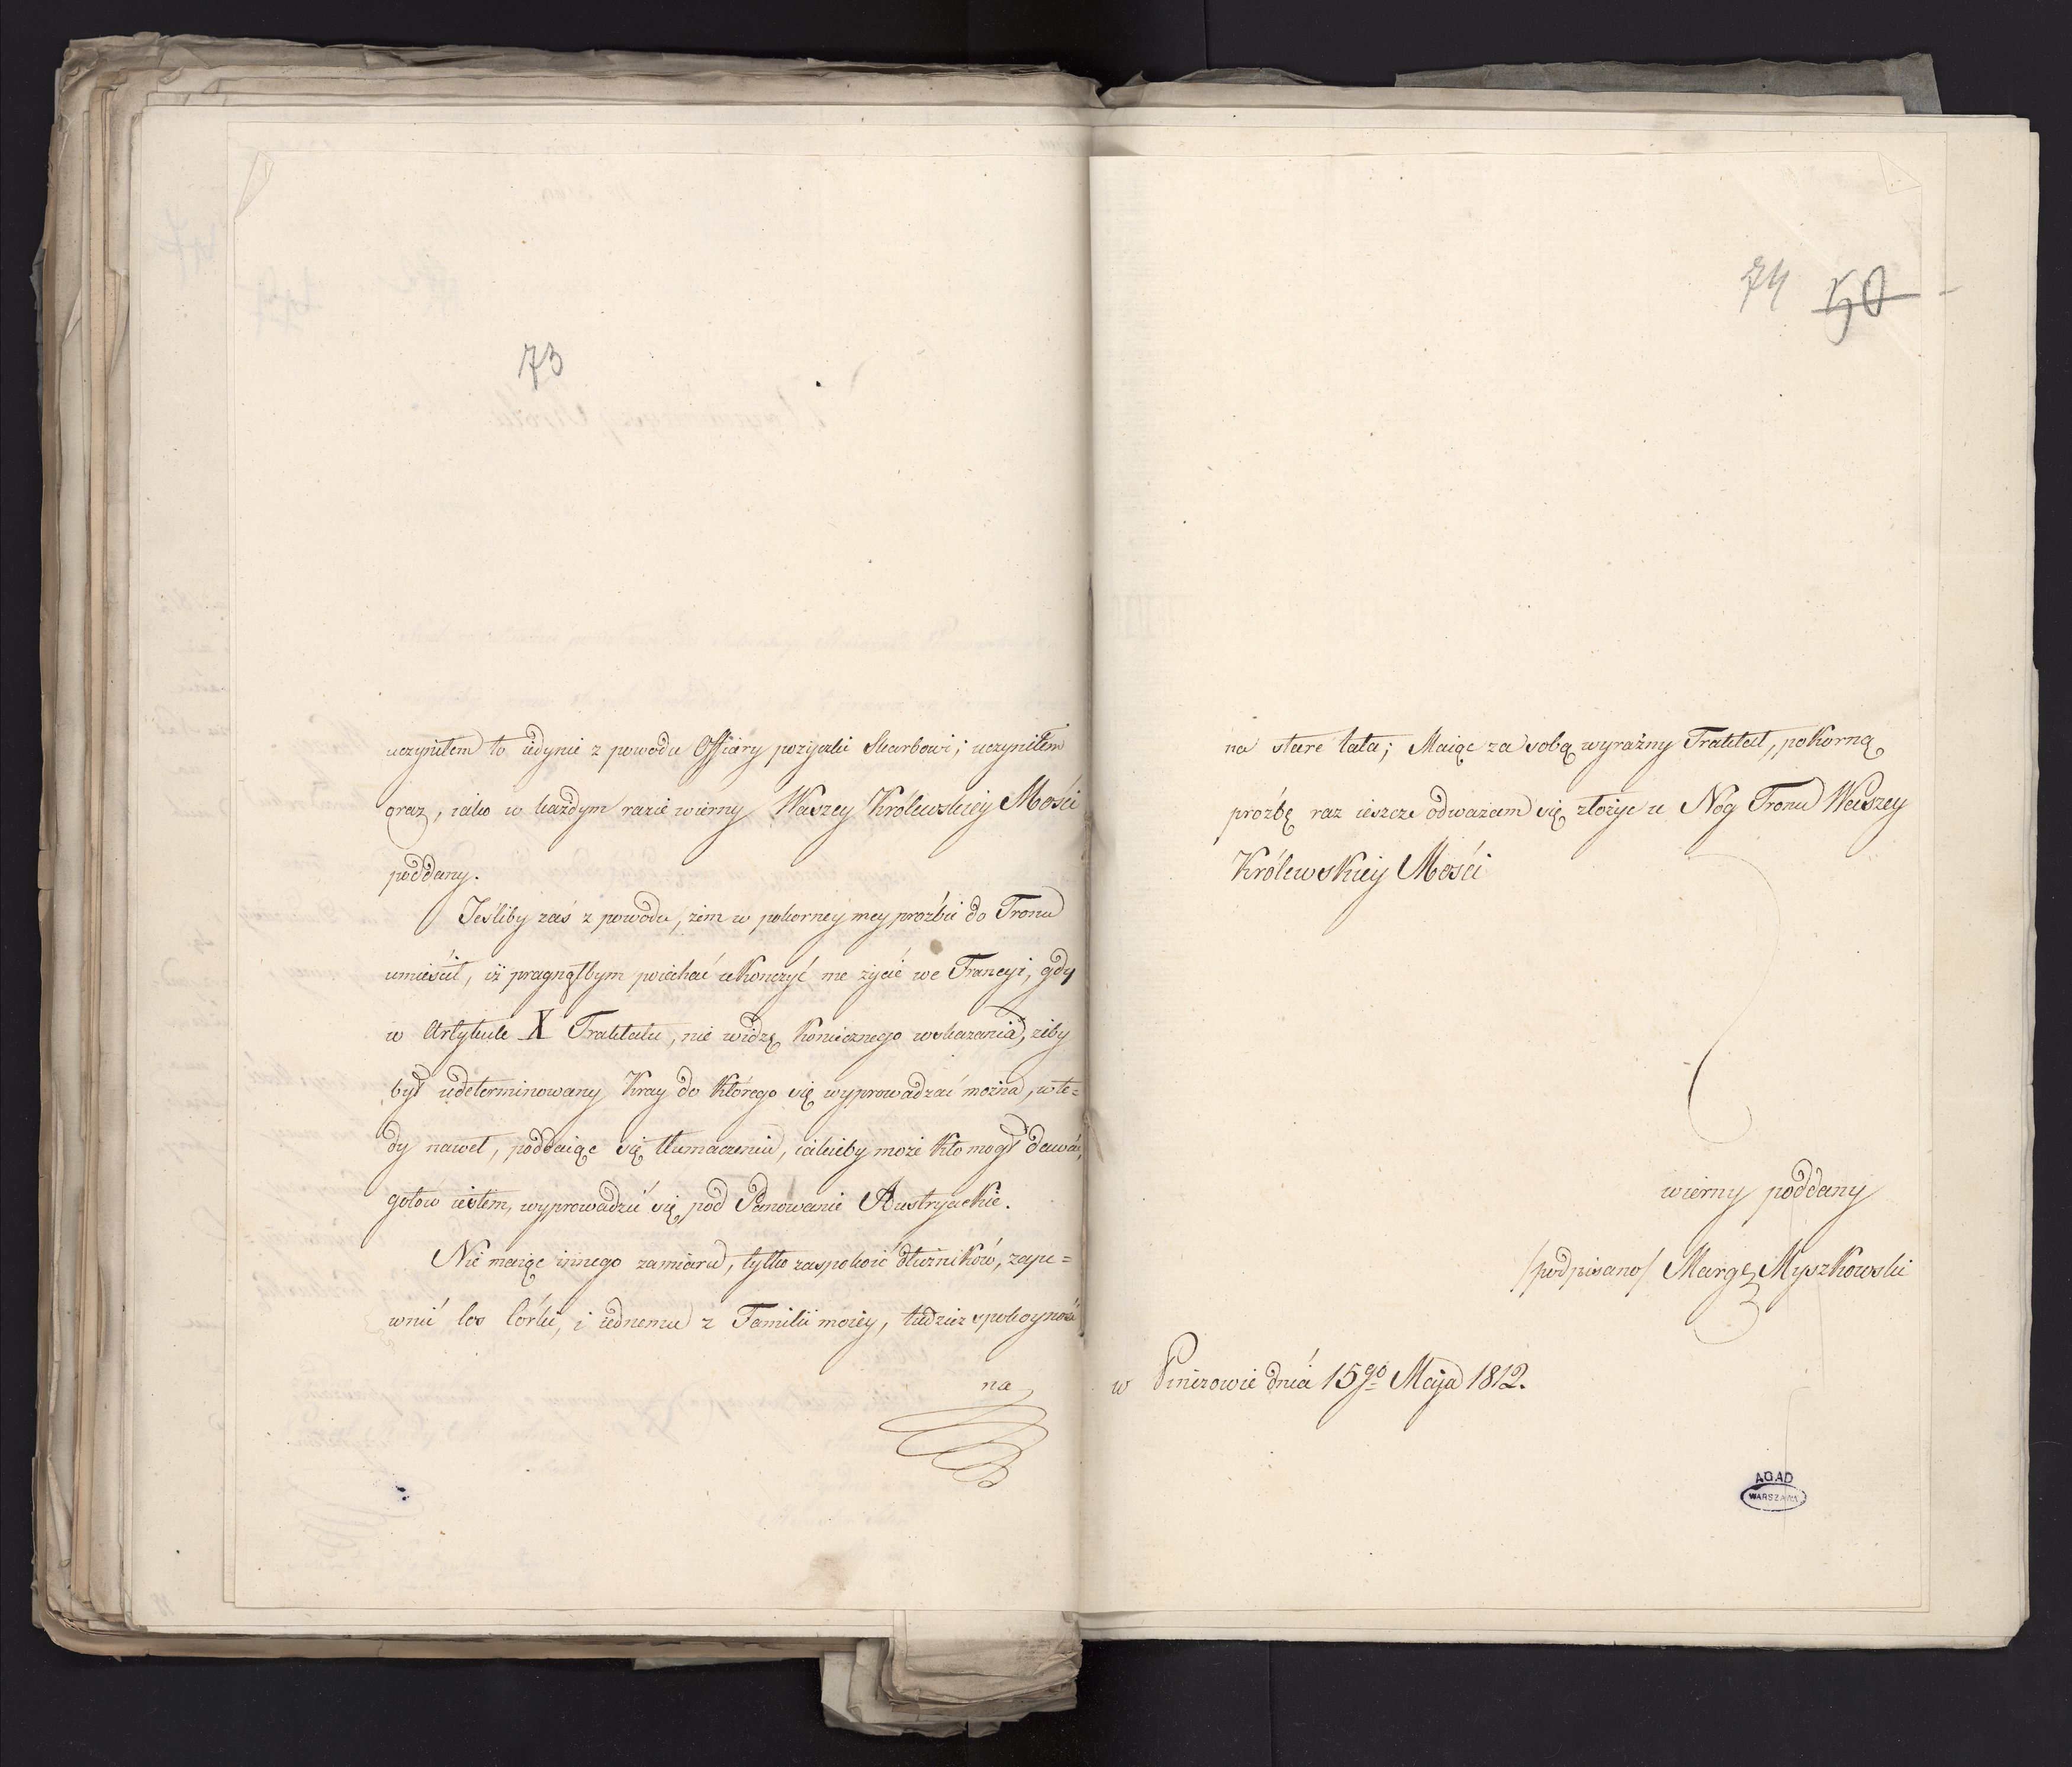 73
uczyniłem to iedynie z powodu Offiary pożyczki Skarbowi; uczyniłem
oraz, iako w każdym razie wierny Waszey Królewskiey Mości
poddany.
Jeśliby zaś z powodu, żem w pokorney mey prożbie do Tronu
umieścił, iż pragnąłbym poiechać ukończyć me życie we Francyi, gdy
w Artykule X Traktatu, nie widzę koniecznego wskazania, żeby
był udeterminowany Kray do którego się wyprowadzać można, wte=
dy nawet, poddaiąc się tłumaczeniu, iakieby może kto mógł dawać,
gotow iestem, wyprowadzić się pod Panowanie Austryackie.
Nie maiąc innego zamiaru, tylko zaspokoić dłużników, zape=
wnić los Córki, i iednemu z Familii moiey, tudzież spokoyność
na
74 50
na stare lata; Maiąc za sobą wyraźny Traktat, pokorną
prożbę raz ieszcze odważam się złożyc u Nóg Tronu Waszey
Królewskiey Mości
wierny poddany
/podpisano/ Margr Myszkowski
w Pinczowie dnia 15go Maja 1812.
AGAD
WARSZAWA